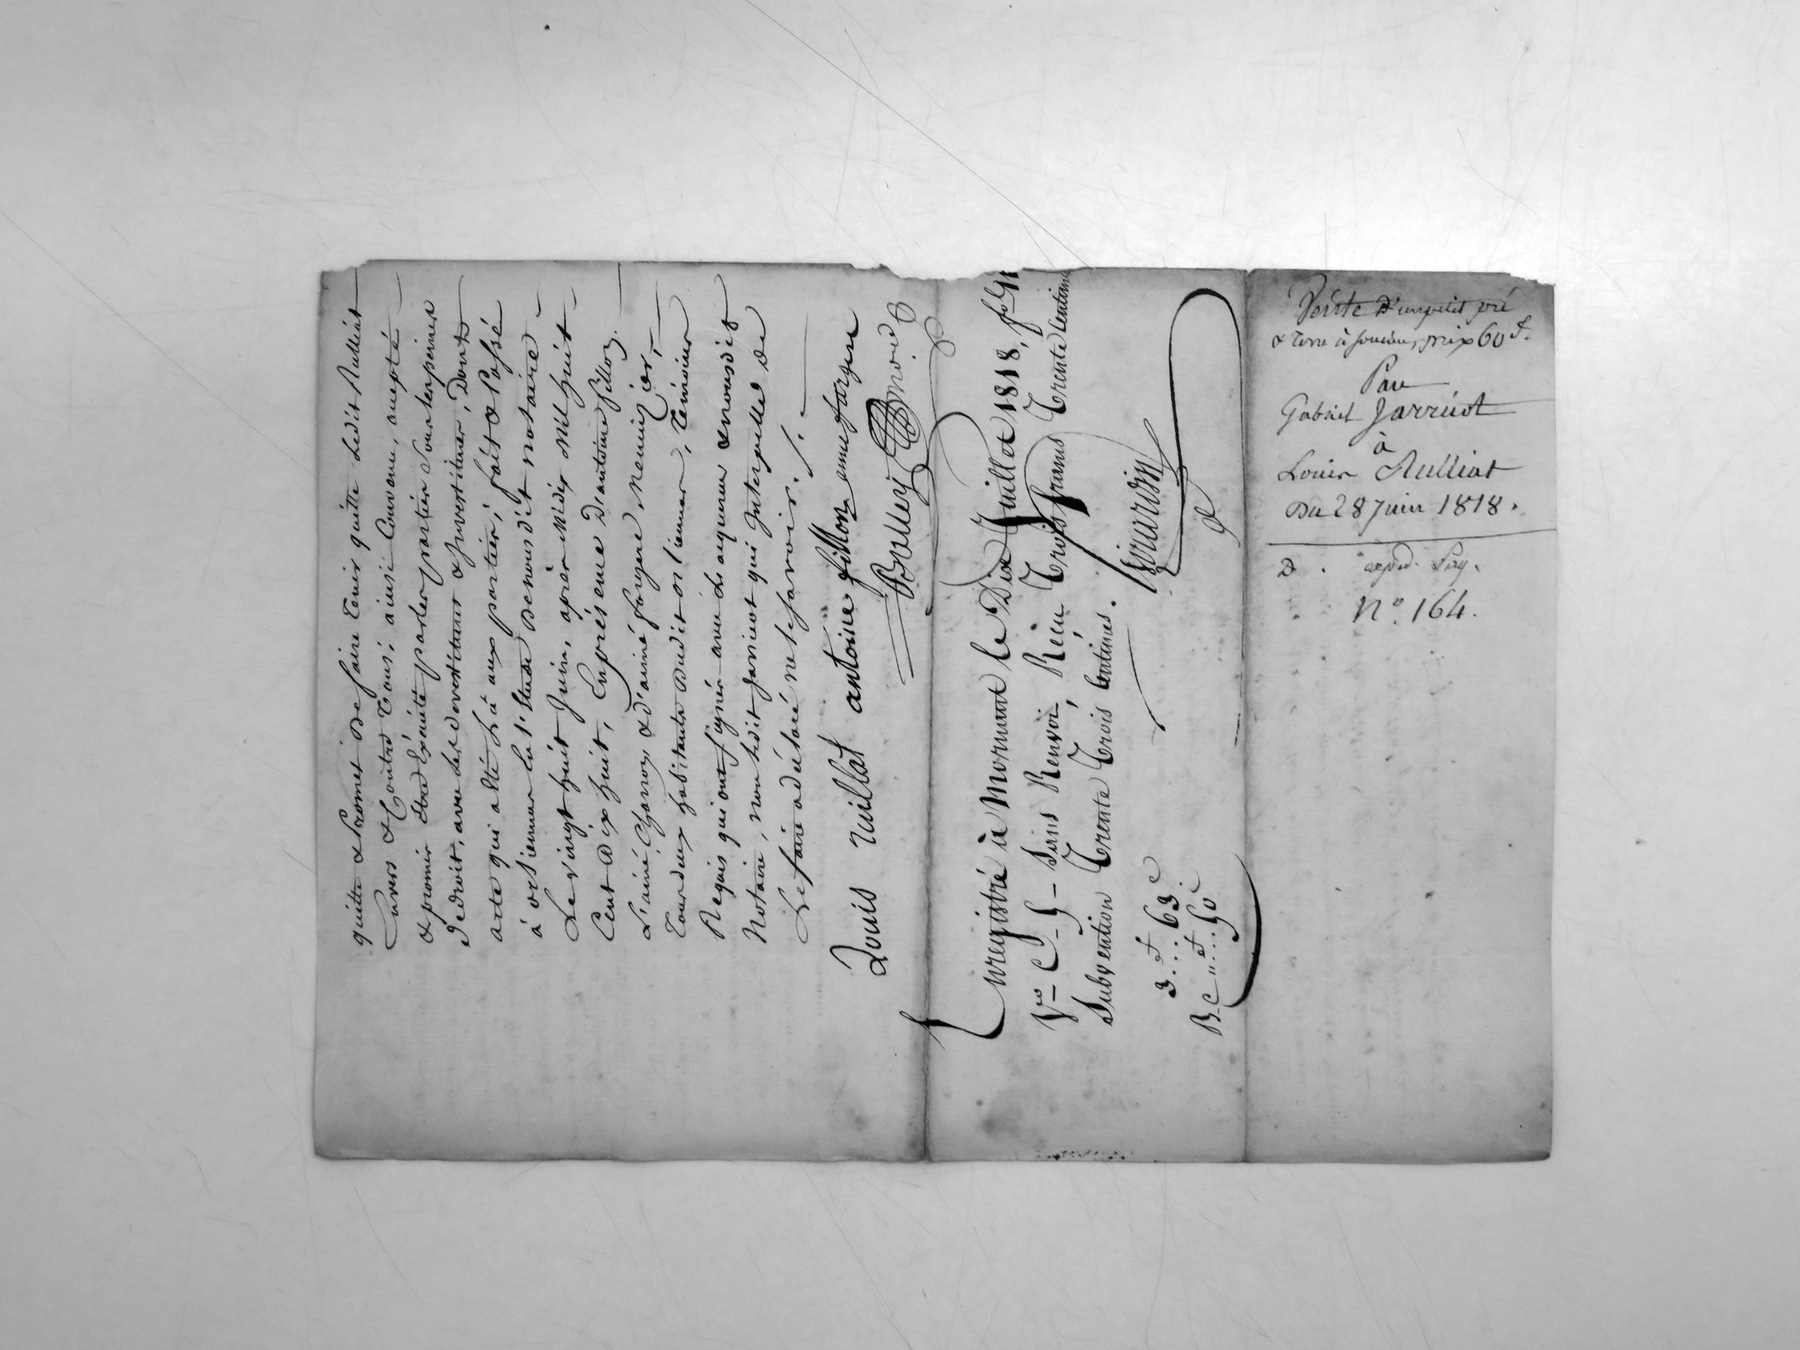 quitte & Promet de faire tenir quitte Ledit Rulliat
Envers & Contre Tous; ainsi Convenu, accepté
& promis Etre Exécuté par les parties sous les peines
de droit, avec les devestitures & Investitures, Dont
acte qui a été Lû aux parties; fait & Passé
à orliennas En l'Etude de nous dit notaire
Le vingt huit Juin, après Midy Mil huit
Cent Dix huit, En présence d'antoine fillon
L'ainé, Charron & d'aimé fargere, menuisier,
Tous deux habitants dudit orliennas, Témoins
Requis qui ont signés avec Les acquereur & nous dit
Notaire, non Ledit Jarricot qui Interpellé de
Le faire a déclaré ne le savoir. /.
Louis ruillat antoine fillon aime fargere
Balley no.re
Enregistré à Mornant le Dix Juillet 1818, fo 91
Vso C. 5 - Sans Renvoi, Recu Trois francs Trente Centimes
Subvention Trente Trois Centimes.
3 f... 63 c
B. C " f... 50 c
Vente d'un petit pré
& Terre à Soucieu, prix 60 f.
Par
Gabriel Jarricot
à
Louis Rulliat
Du 28 Juin 1818.
D. expéd.
No. 164.